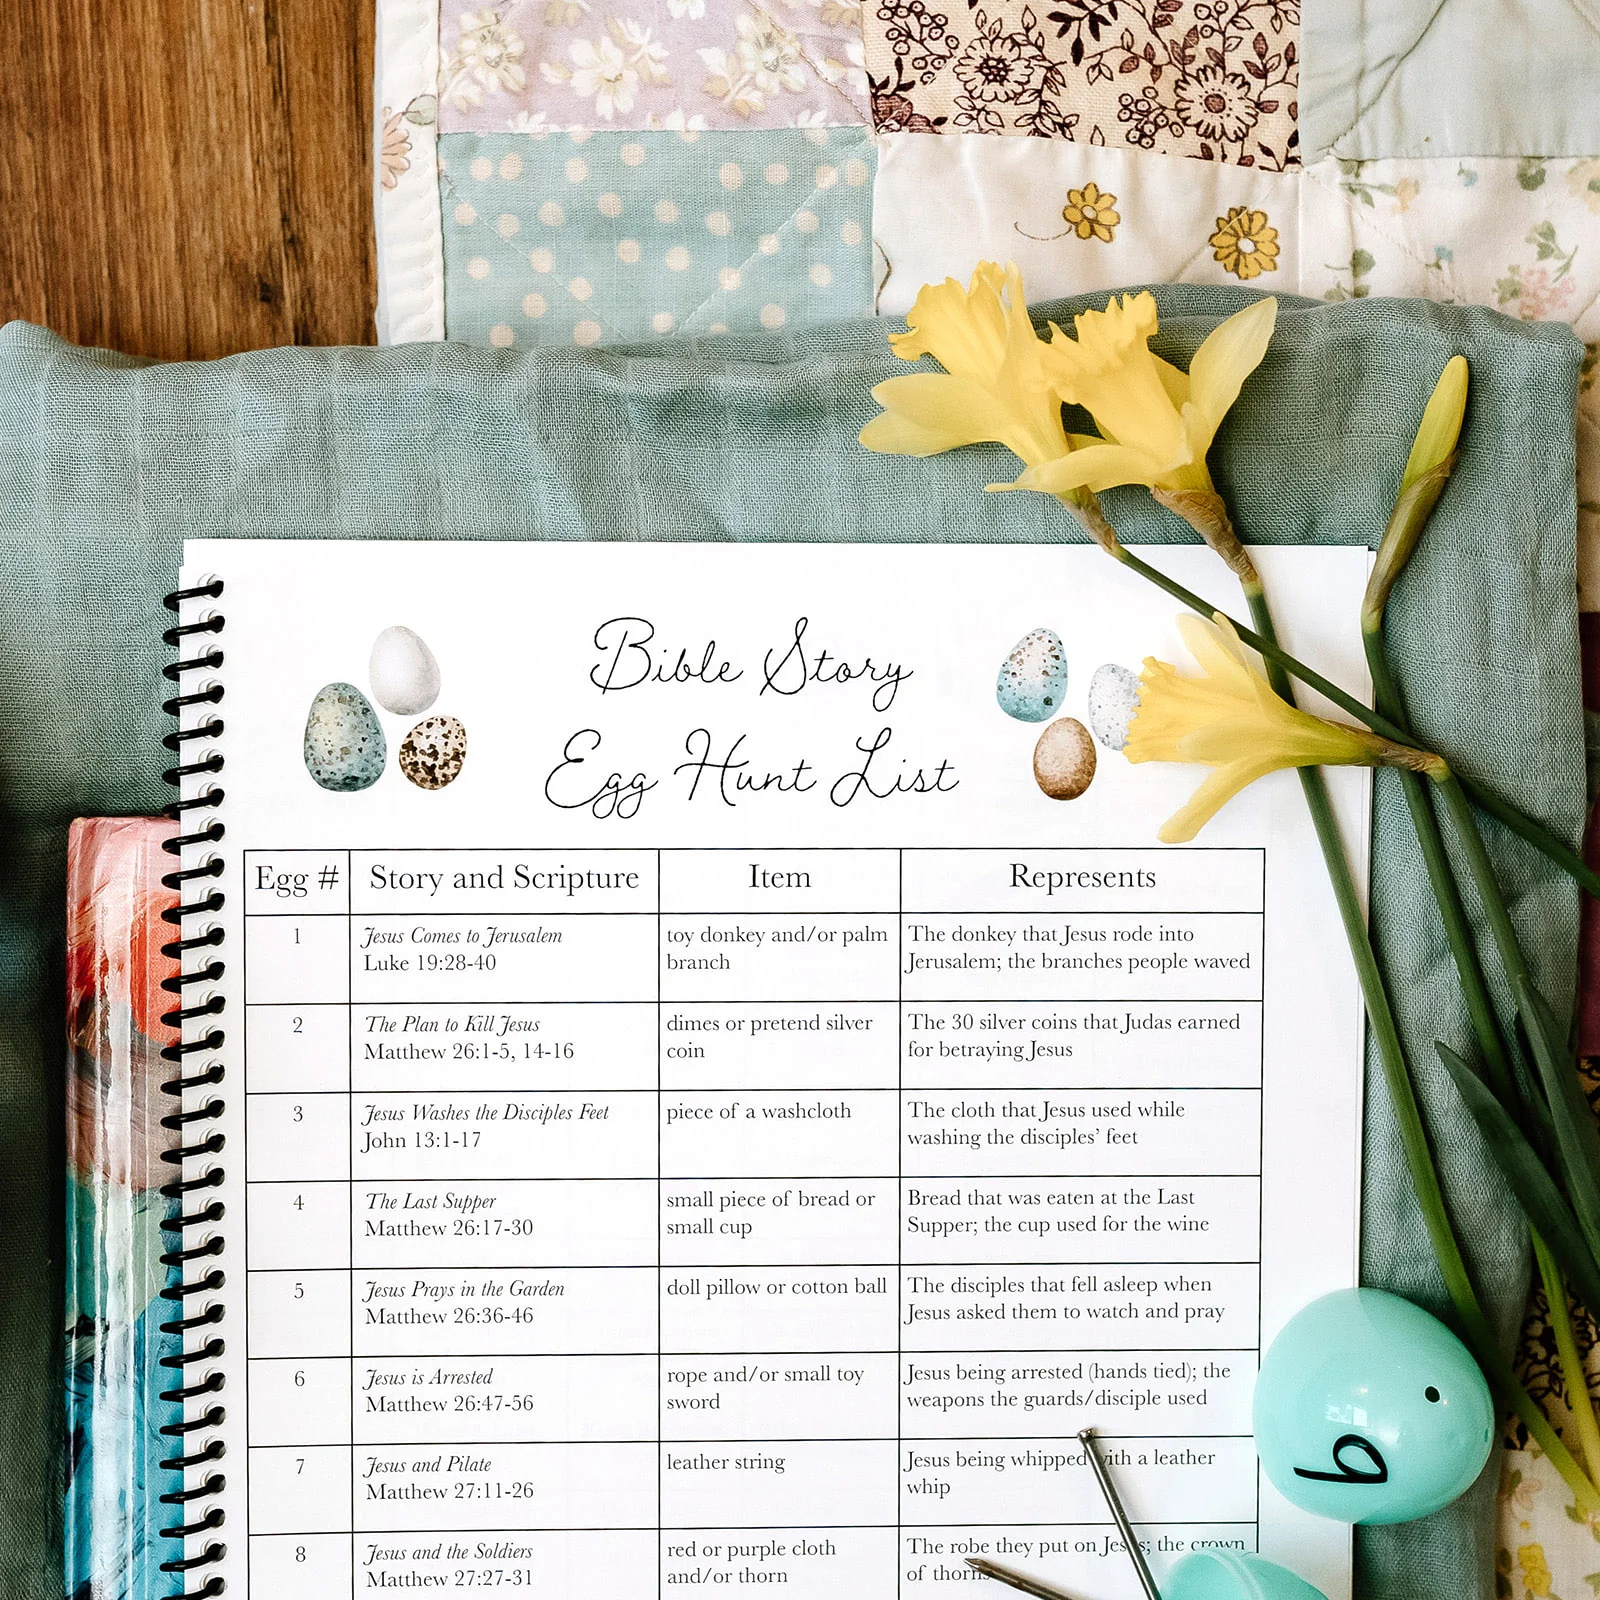 Bible Story
Egg Hunt List
Egg # Story and Scripture Item Represents
1 Jesus Comes to Jerusalem toy donkey and/or palm The donkey that Jesus rode into
Luke 19:28-40 branch Jerusalem; the branches people waved
2 The Plan to Kill Jesus dimes or pretend silver The 30 silver coins that Judas earned
Matthew 26:1-5, 14-16 coin for betraying Jesus
3 Jesus Washes the Disciples Feet piece of a washcloth The cloth that Jesus used while
John 13:1-17 washing the disciples' feet
4 The Last Supper small piece of bread or Bread that was eaten at the Last
Matthew 26:17-30 small cup Supper; the cup used for the wine
5 Jesus Prays in the Garden doll pillow or cotton ball The disciples that fell asleep when
Matthew 26:36-46 Jesus asked them to watch and pray
6 Jesus is Arrested rope and/or small toy Jesus being arrested (hands tied); the
Matthew 26:47-56 sword weapons the guards/disciple used
7 Jesus and Pilate leather string Jesus being whipped with a leather
Matthew 27:11-26 whip
8 Jesus and the Soldiers red or purple cloth The robe they put on Jesus; the crown
Matthew 27:27-31 and/or thorn of thorns